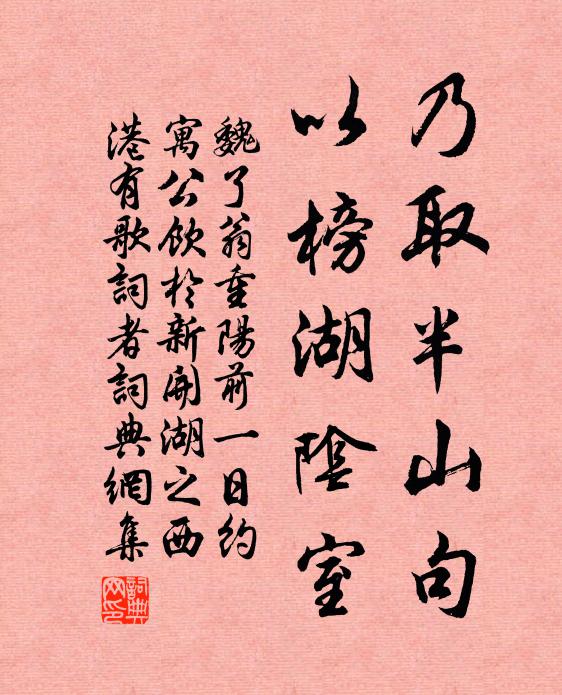 乃取半山句
以榜湖陰室
魏了翁重陽前一日約
寓公飲於新開湖之西
港有歌詞者詞典網集
詞典网印